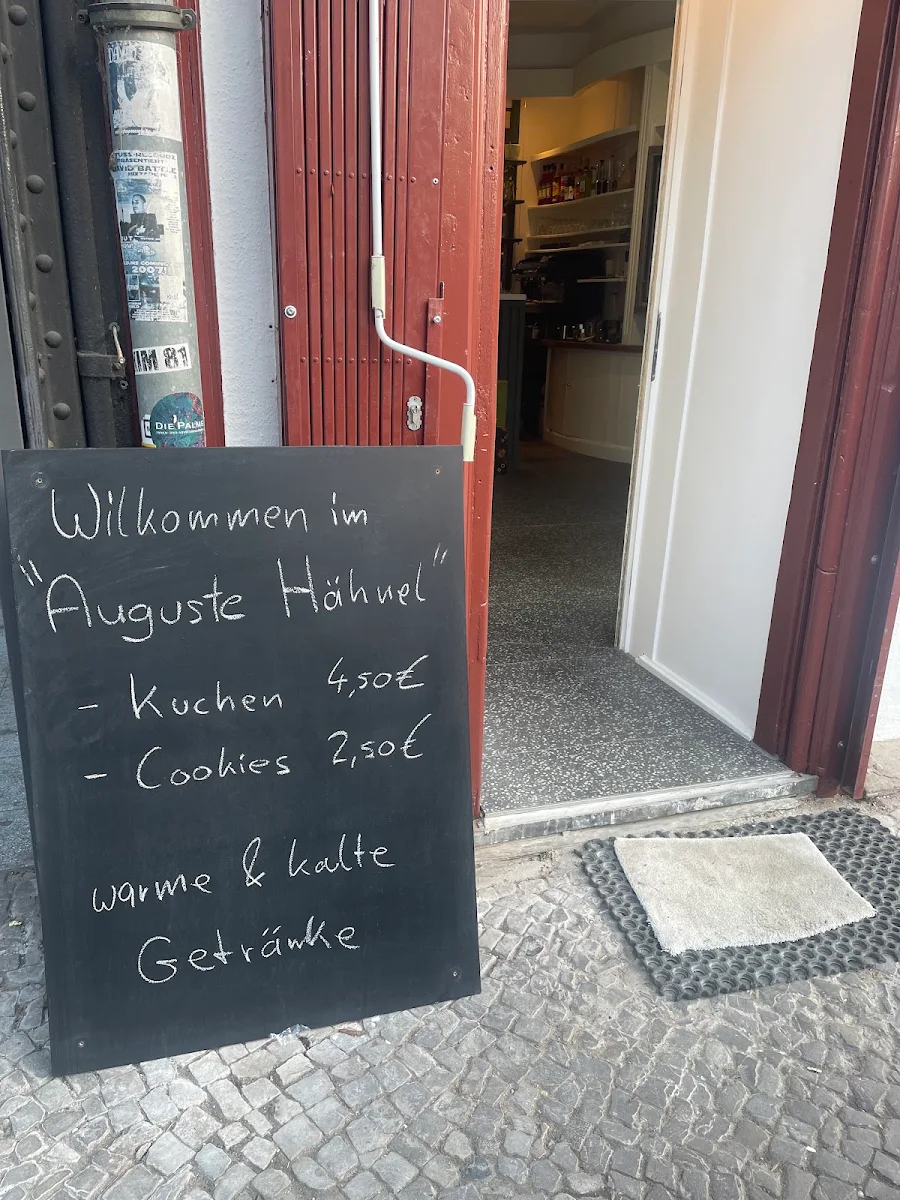 TUSS-RECORDZ
PRÄSENTIERT:
DAVID BATTLE
MIXTAPE
2007!
IM 81
DIE PALME
Wilkommen im
"Auguste Hähnel"
- Kuchen 4,50€
- Cookies 2,50€
warme & kalte
Getränke